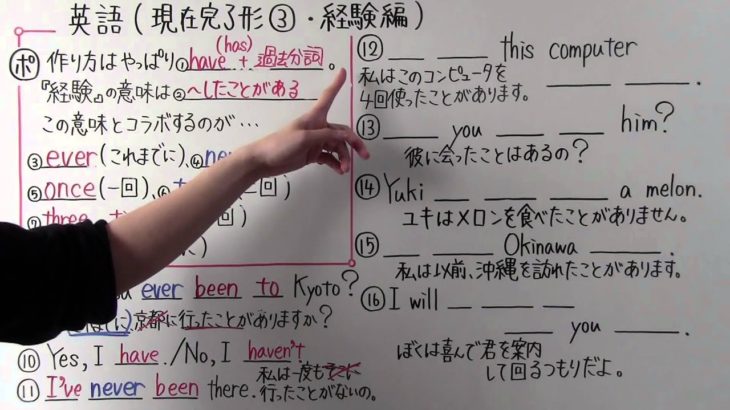 英語(現在完了形③・経験編)
ポ 作り方はやっぱり①have(has) + 過去分詞。
『経験』の意味は②〜したことがある
この意味とコラボするのが…
③ever(これまでに)、④ne
⑤once(一回)、⑥t 回)
⑦three ti 回)
ever been to Kyoto?
京都に行ったことがありますか?
⑩Yes, I have./No, I haven't
⑪I've never been there.
私は一度もそこに
行ったことがないの。
⑫__ __ this computer
私はこのコンピュータを
4回使ったことがあります。 __ __
⑬__ you __ __ him?
彼に会ったことはあるの?
⑭Yuki __ __ __ a melon.
ユキはメロンを食べたことがありません。
⑮__ __ Okinawa __.
私は以前、沖縄を訪れたことがあります。
⑯I will __ __ __
__ you __.
ぼくは喜んで君を案内
して回るつもりだよ。